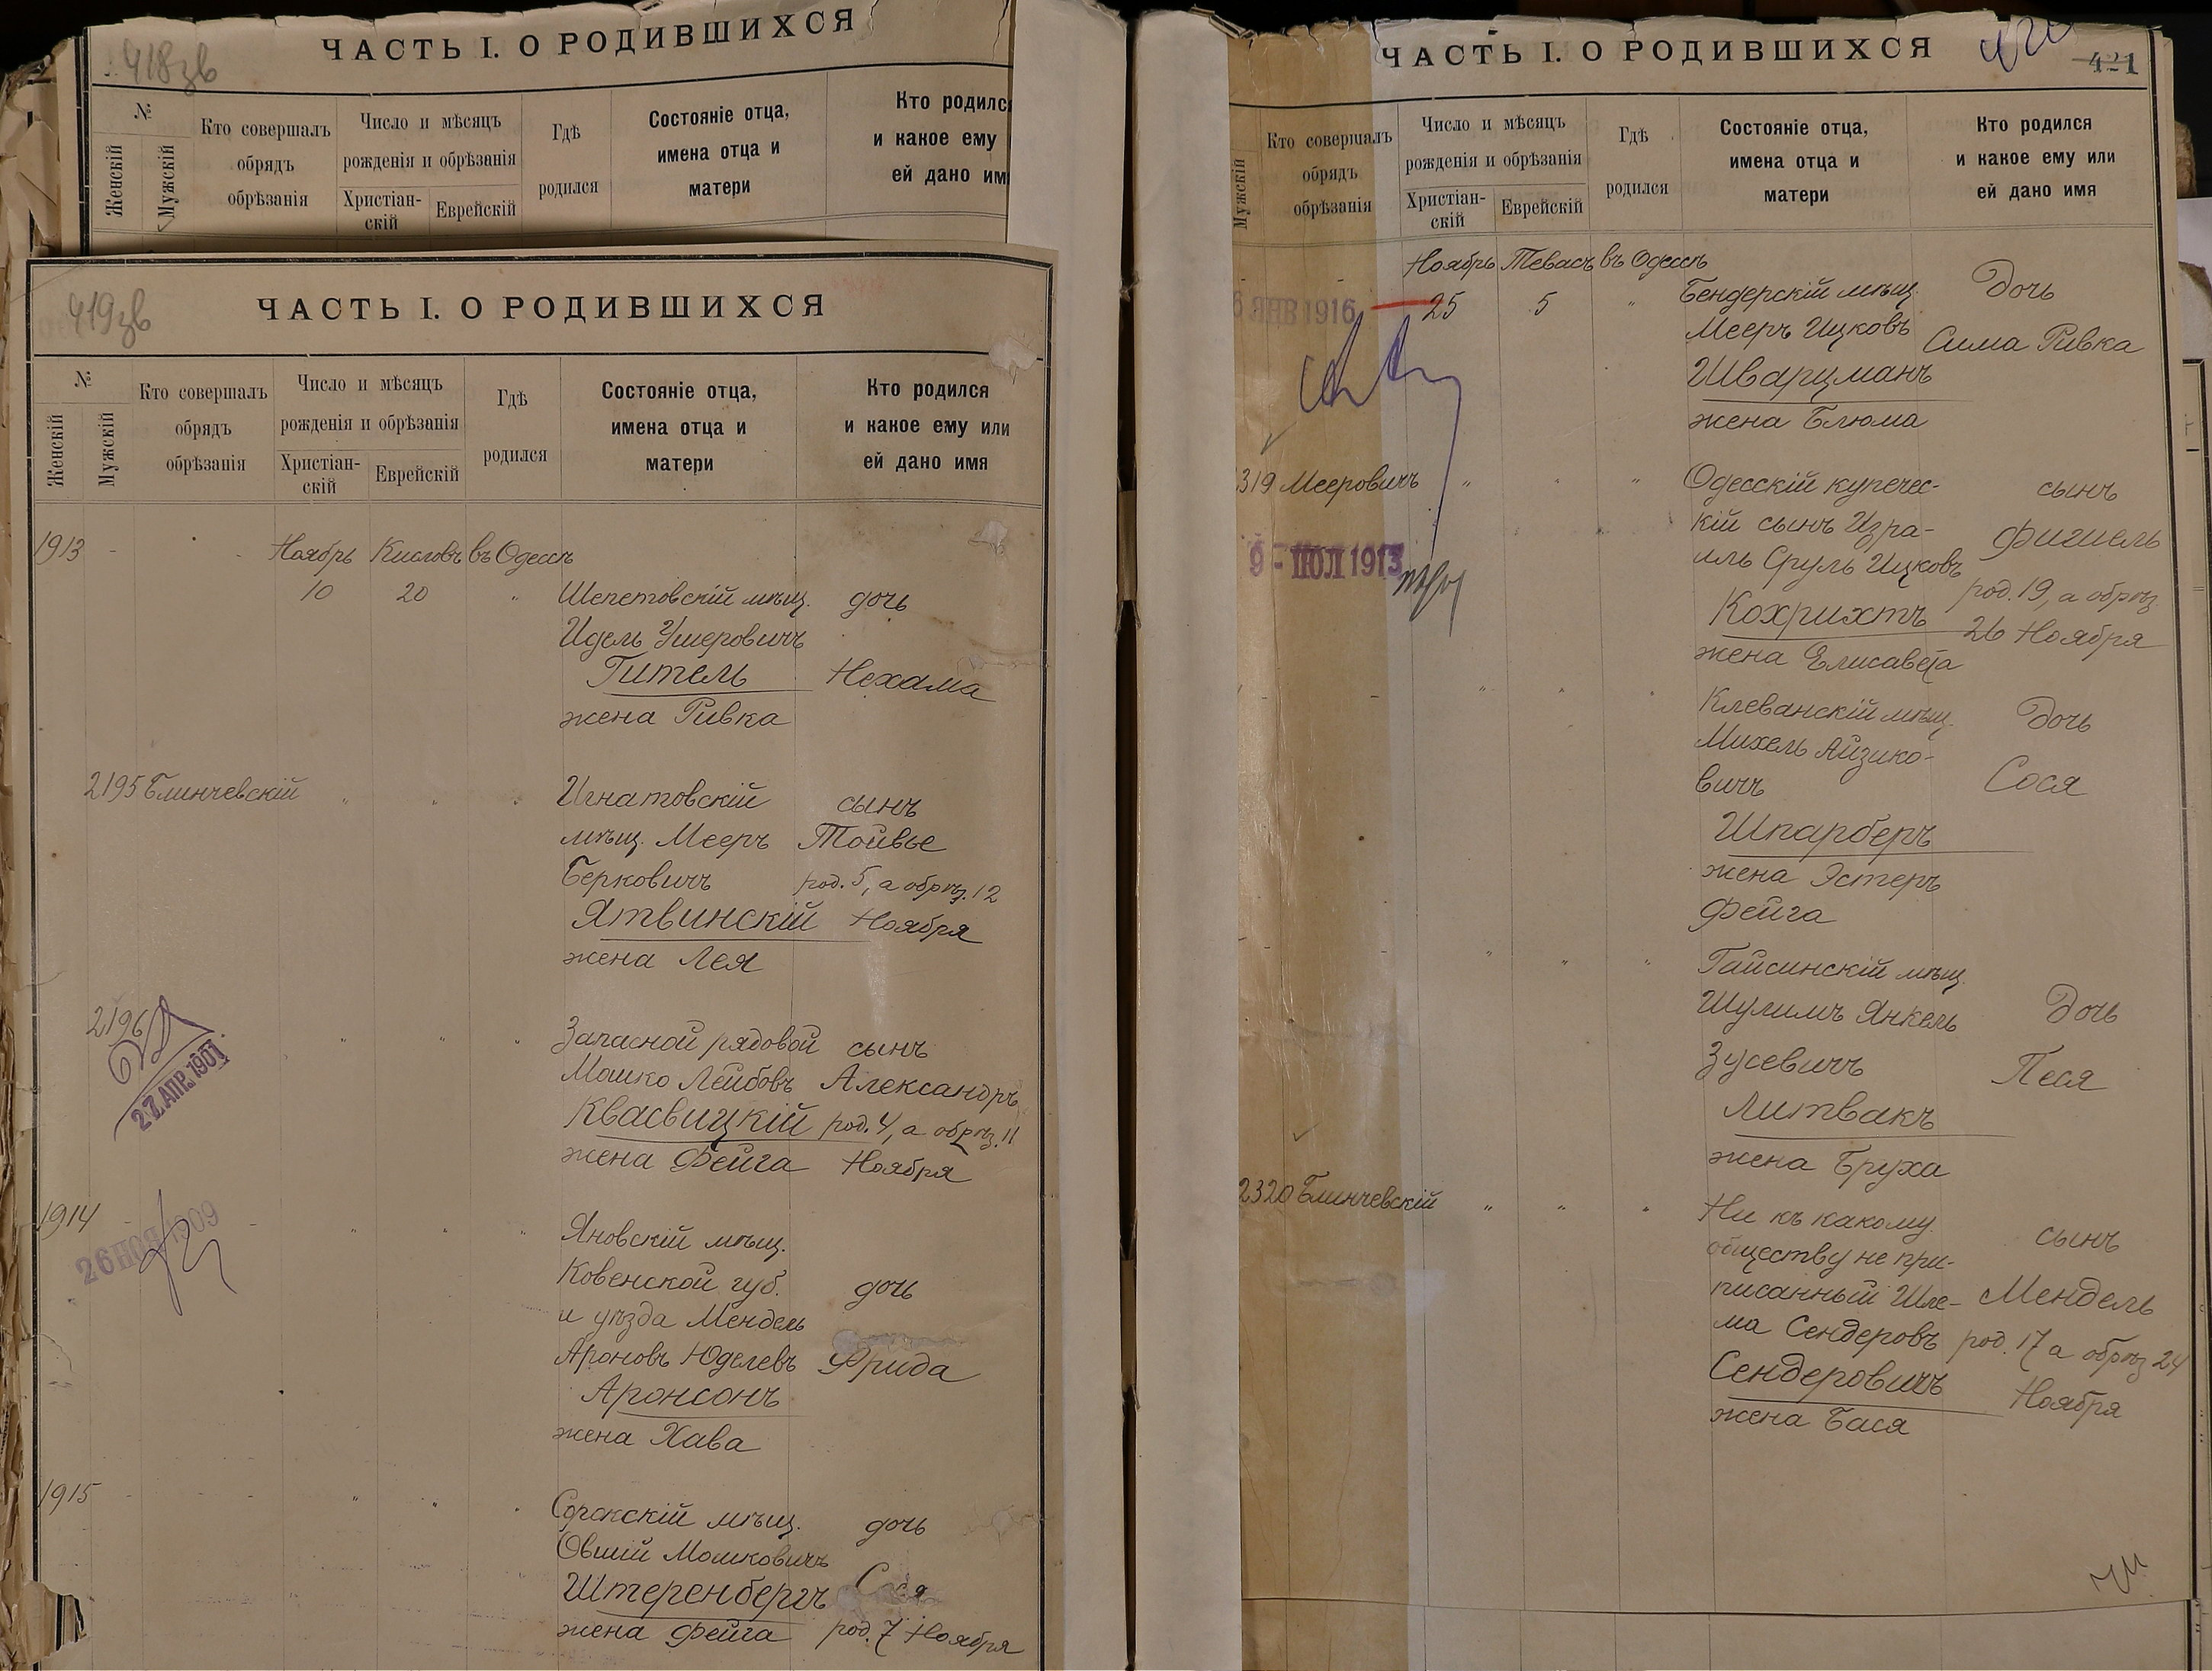 418зв
ЧАСТЬ I. О РОДИВШИХСЯ
№
Женскій
Мужскій
Кто совершалъ
обрядъ
обрѣзанія
Число и мѣсяцъ
рожденія и обрѣзанія
Христіан-
скій
Еврейскій
Гдѣ
родился
Состояніе отца,
имена отца и
матери
Кто родилс
и какое ему
ей дано им
419зв
ЧАСТЬ I. О РОДИВШИХСЯ
№
Женскій
Мужскій
Кто совершалъ
обрядъ
обрѣзанія
Число и мѣсяцъ
рожденія и обрѣзанія
Христіан-
скій
Еврейскій
Гдѣ
родился
Состояніе отца,
имена отца и
матери
Кто родился
и какое ему или
ей дано имя
1913 - - Ноябрь Кисловъ въ Одессѣ
10 20 " Шепетовскій мѣщ. дочь
Идель Ушеровичъ
Гитель Нехама
жена Ривка
2195 Блинчевскій " " " Игнатовскій сынъ
мѣщ. Мееръ Тойвье
Берковичъ род. 5, а обрѣз. 12
Ятвинскій Ноября
жена Лея
2196 " " " Запасной рядовой сынъ
Мошко Лейбовъ Александръ
Квасвицкій род. 4, а обрѣз. 11
жена Фейга Ноября
27. АПР. 1901
1914 - - " " " Яновскій мѣщ.
Ковенской губ. дочь
и уѣзда Мендель
Ароновъ Юделевъ Фрида
Аронсонъ
жена Хава
26 НОЯ 1909
1915 - - - " " " Сорокскій мѣщ. дочь
Овшій Мошковичъ
Штеренбергъ Сося
жена Фейга род. 7 Ноября
ЧАСТЬ I. О РОДИВШИХСЯ
421
Мужскій
Кто совершалъ
обрядъ
обрѣзанія
Число и мѣсяцъ
рожденія и обрѣзанія
Христіан-
скій
Еврейскій
Гдѣ
родился
Состояніе отца,
имена отца и
матери
Кто родился
и какое ему или
ей дано имя
Ноябрь Тевасъ въ Одессѣ
ЯНВ 1916 25 5 " Бендерскій мѣщ. Дочь
Мееръ Ицковъ Сима Ривка
Шварцманъ
жена Блюма
319 Мееровичъ " " " Одесскій купечес- сынъ
кій сынъ Изра- Фишель
иль Сруль Ицковъ род. 19, а обрѣз
Кохрихтъ 26 Ноября
жена Елисавета
9 - ИЮЛ 1913
- - " " " Клеванскій мѣщ. Дочь
Михель Айзико-
вичъ Сося
Шпарберъ
жена Эстеръ
Фейга
- - " " " Гайсинскій мѣщ.
Шулимъ Янкель Дочь
Зусевичъ Песя
Литвакъ
жена Бруха
2320 Блинчевскій " " " Ни къ какому сынъ
обществу не при-
писанный Шле- Мендель
ма Сендеровъ род. 17 а обрѣз 24
Сендеровичъ Ноября
жена Бася